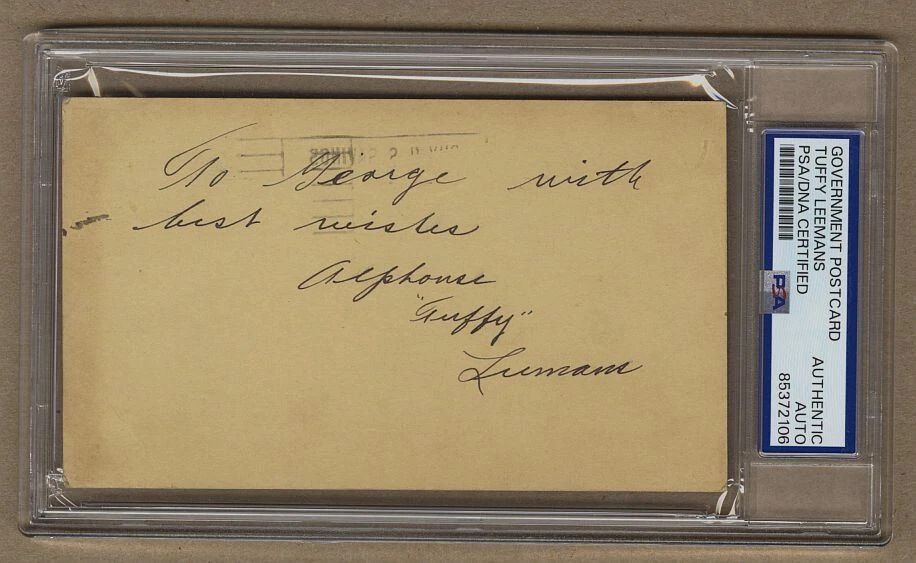 To George with
best wishes
Alphonse
"Tuffy"
Leemans
GOVERNMENT POSTCARD
TUFFY LEEMANS
PSA/DNA CERTIFIED
AUTHENTIC
AUTO
85372106
PSA